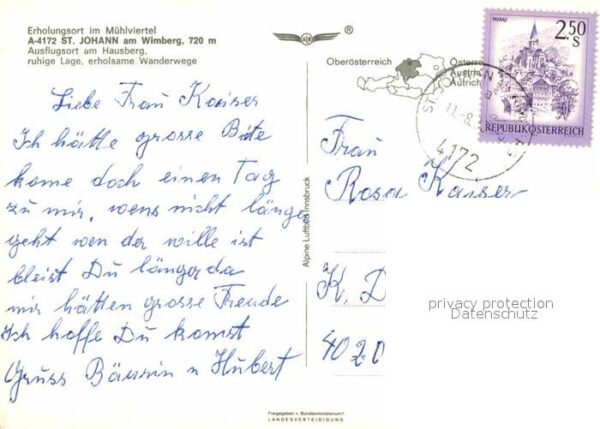 Erholungsort im Mühlviertel
A-4172 ST. JOHANN am Wimberg, 720 m
Ausflugsort am Hausberg,
ruhige Lage, erholsame Wanderwege
Liebe Frau Kaiser
Ich hätte grosse Bite
kome doch einen Tag
zu mir, wens nicht länge
geht wen der wille ist
bleist Du länger da
mir hätten grosse Freude
Ich hoffe Du komst
Gruss Bäurin u Hubert
Alpine Luftbild Innsbruck
Oberösterreich
Österre
Austria
Autrich
ST. JOHANN
4172
MURAU
2.50
S
REPUBLIK ÖSTERREICH
Frau
Rosa Kaiser
K. D
4020
privacy protection
Datenschutz
Freigegeben v. Bundesministerium f.
LANDESVERTEIDIGUNG